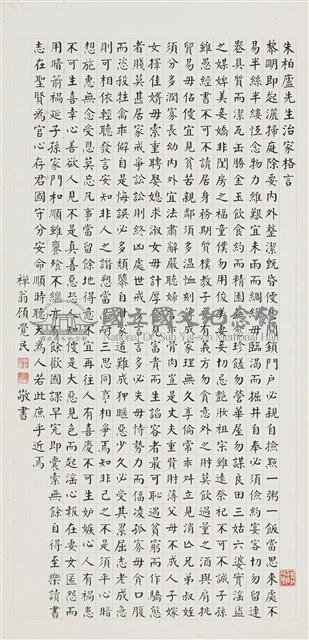 朱柏廬先生治家格言
黎明即起灑掃庭除要內外整潔既昏便息關鎖門戶必親自撿點一粥一飯當思來處不
易半絲半縷恆念物力維艱宜未雨而綢繆毋臨渴而掘井自奉必須儉約宴客切勿留連
器具質而潔瓦缶勝金玉飲食約而精園蔬愈珍饈勿營華屋勿謀良田三姑六婆實淫盜
之媒婢美妾嬌非閨房之福童僕勿用俊美妻妾切忌艷妝祖宗雖遠祭祀不可不誠子孫
雖愚經書不可不讀居身務期質樸教子要有義方勿貪意外之財莫飲過量之酒與肩挑
貿易毋佔便宜見貧苦親鄰須加溫恤刻薄成家理無久享倫常乖舛立見消亡兄弟叔姪
須分多潤寡長幼內外宜法肅辭嚴聽婦言乖骨肉豈是丈夫重貲財薄父母不成人子嫁
女擇佳婿毋索重聘娶媳求淑女毋計厚奩見富貴而生諂容者最可恥遇貧窮而作驕態
者賤莫甚居家戒爭訟訟則終凶處世戒多言言多必失毋恃勢力而凌逼孤寡毋貪口腹
而恣殺牲禽乖僻自是悔誤必多頹惰自甘家道難成狎暱惡少久必受其累屈志老成急
則可相依輕聽發言安知非人之譖愬當忍耐三思因事相爭焉知非己之不是須平心暗
想施惠無念受恩莫忘凡事當留餘地得意不宜再往人有喜慶不可生妒嫉心人有禍患
不可生喜幸心善欲人見不是真善惡恐人知便是大惡見色而起淫心報在妻女匿怨而
用暗箭禍延子孫家門和順雖饔飧不繼亦有餘歡國課早完即囊橐無餘自得至樂讀書
志在聖賢為官心存君國守分安命順時聽天為人若此庶乎近焉
禪翁顧覺民敬書
國立國父紀念館
National Dr. Sun Yat-sen Memorial Hall